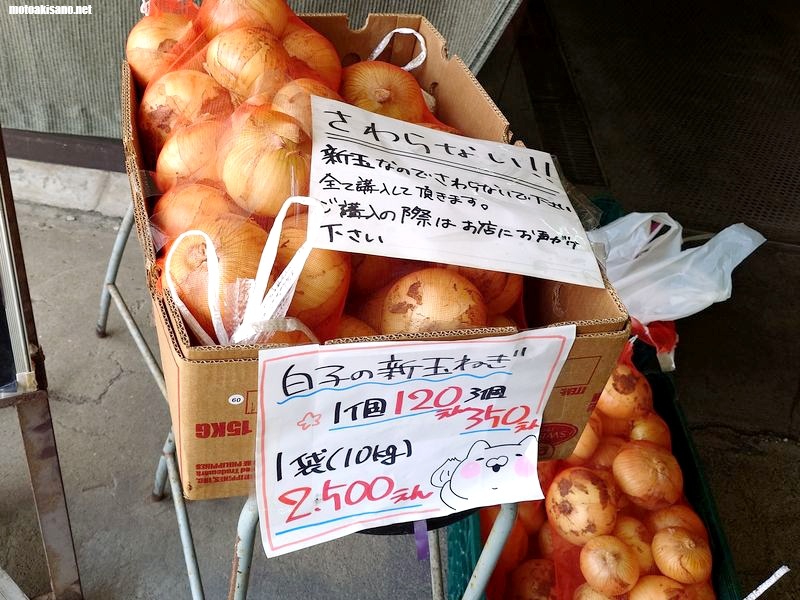 motoakisano.net
さわらない!!
新玉なのでさわらないで下さい
全て購入して頂きます。
ご購入の際はお店にお声がけ
下さい
白子の新玉ねぎ
1個120えん 3個
350えん
1袋(10kg)
2.500えん
60
15KG